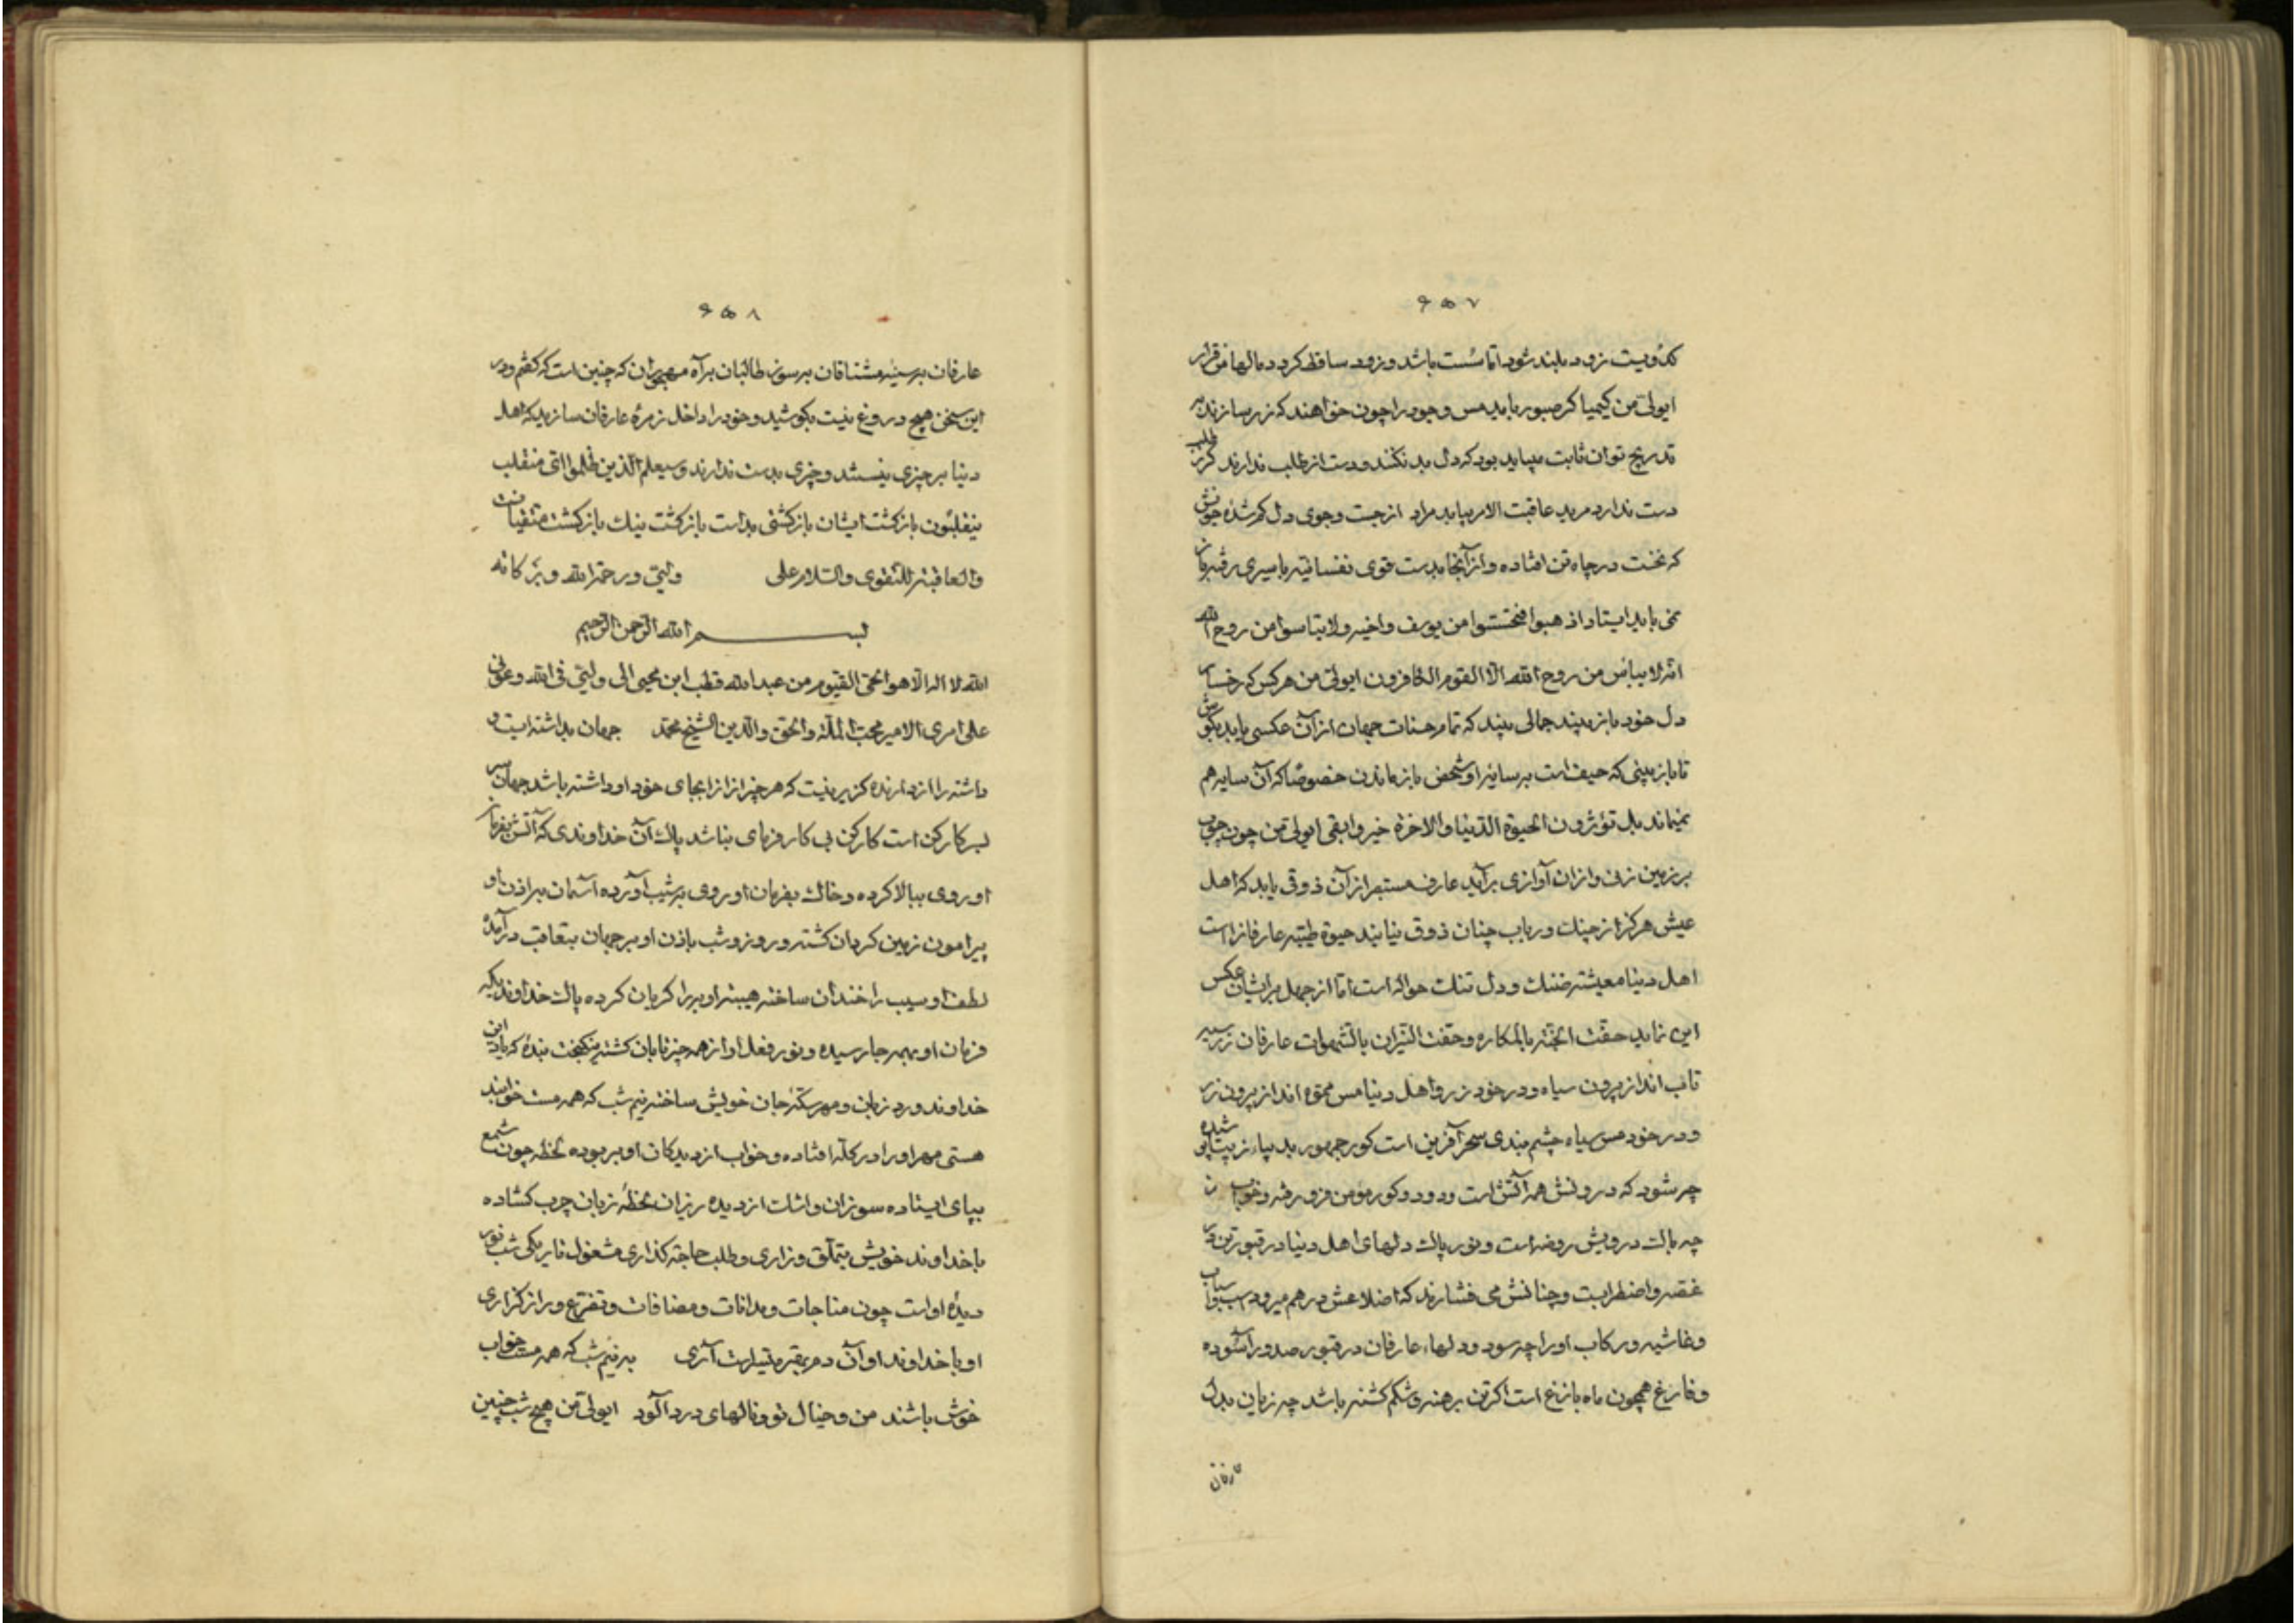 ۶۵۷
کدویست زود بلند شود اما سست باشد و زود ساقط کردد مالها من قرار
ایولی من کیمیا کر صبور باید مس وجود را چون خواهند که زر سازند به
تدریج توان ثابت میباید بود که دل بد نکنند و دست از طلب ندارند کر ز طلب
دست ندارد مرید عاقبت الامر بیابد مراد از جست وجوی دل کم شدهٔ خویش
که نخست در چاه تن افتاده و از آنجا بدست قوی نفسانیه باسیری رفته باز
نمی باید ایستاد اذهبوا فتحسسوا من یوسف واخیه ولا تیاسوا من روح الله
انه لا ییأس من روح الله الا القوم الکافرون ایولی من هرکس که رخسار
دل خود باز بیند جمالی بیند که تمام حسنات جهان از آن عکسی باید بکوش
تا باز بینی که حیف است بر سایهٔ او شخص باز ماندن خصوصا که آن سایه هم
نمیماند بل تؤثرون الحیوة الدنیا والاخرة خیر وابقی ایولی من چون چوب
بر زمین زنی و ازان آوازی برآید عارف مستبصر از آن ذوقی یابد که اهل
عیش هرکز از چنک و رباب چنان ذوق نیابند حیوة طیبه عارفانراست
اهل دنیا معیشته ضنک و دل تنک حواله است اما از جهل بر ایشان عکس
این نماید حفت الجنة بالمکاره وحفت النیران بالشهوات عارفان زر سیه
تاب اند از برون سیاه و در خود زر و اهل دنیا مس مموه اند از برون زر
و در خود مس سیاه چشم بندی سحر آفرین است کور جهود بد بیاء زیبا شده
چه شود که درونش همه آتش است و دود و کور مومن فرو رفته و خراب
چه باک درویش روضه است و نور پاک دلهای اهل دنیا در قبور تن در
غصه و اضطرابست و چنانش می فشارند که اضلاعش در هم میرود اسب و اسباب
و غاشیه و رکاب او را چه سود و دلهاء عارفان در قبور صدور آسوده
و فارغ همچون ماه بازغ است اکر تن برهنه و شکم کشنه باشد چه زیان بدل
عارفان
۶۵۸
عارفان بر سینه مشتاقان بر سوز طالبان بر آه مهجوران که چنین است که کفتم و در
این سخن هیچ دروغ نیست بکوشید و خود را داخل زمرهٔ عارفان سازید که اهل
دنیا بر چیزی نیستند و چیزی بدست ندارند وسیعلم الذین ظلموا ای منقلب
ینقلبون بازکشت ایشان بازکشتی بد است بازکشت نیک بازکشت متقیانست
والعاقبة للتقوی والسلام علی ولیی ورحمة الله وبرکاته
بسم الله الرحمن الرحیم
الله لا اله الا هو الحی القیوم من عبدالله قطب ابن محیی الی ولیی فی الله وعونی
علی امری الامیر محب الملة والحق والدین الشیخ محمد جهان بداشته است و
داشته را از دارنده کزیر نیست که هر چیز از انجای خود او داشته باشد جهان سر
بسر کارکن است کارکن بی کار فرمای نباشد پاک آن خداوندی که آتش بفرمان
او روی ببالا کرده و خاک بفرمان او روی بر شیب آورده آسمان بر اذن او
پیرامون زمین کردان کشته و روز و شب باذن او بر جهان بتعاقب در آمده
لطف او سیب را خندان ساخته هیبت او ابر را کریان کرده پاک خداوندیکه
فرمان او بهمه جا رسیده و نور فعل او از همه چیز تابان کشته نیکبخت بندهٔ که یاد این
خداوند ورد زبان و مهر سکهٔ جان خویش ساخته نیم شب که همه مست خوابند
هستی مهر او را در کله افتاده و خواب از دیدکان او بربوده لحظه چون شمع
بپای ایستاده سوزان و اشک از دیده ریزان لحظهٔ زبان چرب کشاده
با خداوند خویش بتملق و زاری و طلب حاجة کذاری مشغول تاریکی شب نور
دیدهٔ اوست چون مناجات و مدانات و مصافات و تضرع و راز کزاری
او با خداوند او آن دم بقبر متیسرست آری به نیم شب که همه مست خواب
خوش باشند من و خیال تو و نالهای درد آلود ایولی من هیچ شب چنین